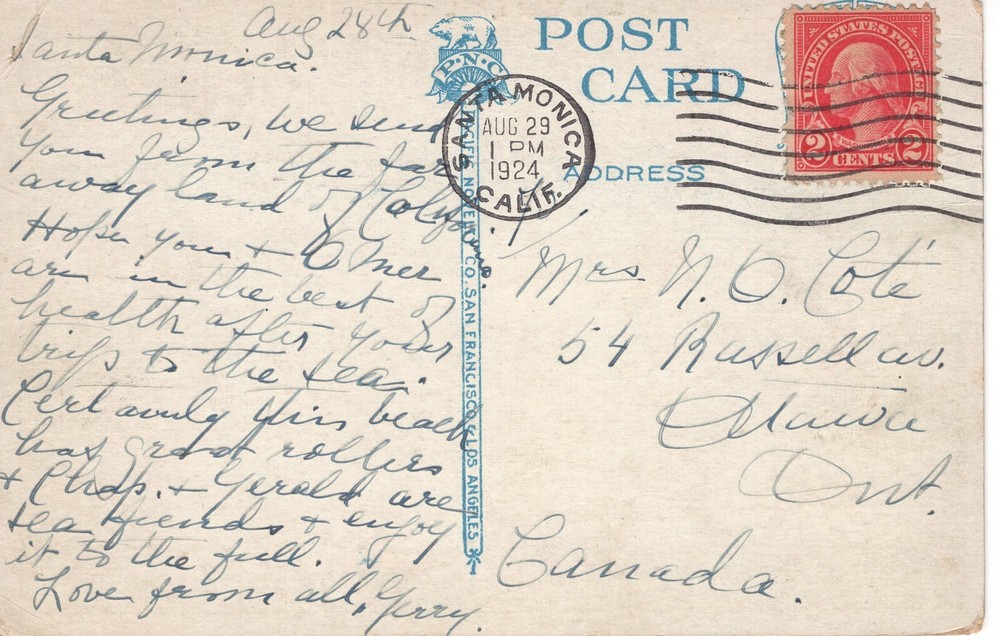 Aug 28th
Santa Monica.
Greetings, we send
you from the far
away land of Calif.
Hope you & Omer
are in the best of
health after your
trip to the sea.
Certainly this beach
has great rollers
& Chas. & Gerald are
sea fiends & enjoy
it to the full.
Love from all, Gerry.
P.N.C
PACIFIC NOVELTY CO. SAN FRANCISCO & LOS ANGELES
POST
CARD
ADDRESS
SANTA MONICA
AUG 29
1 PM
1924
CALIF.
UNITED STATES POSTAGE
2 CENTS 2
Mrs N. O. Coté
54 Russell av.
Ottawa
Ont.
Canada.